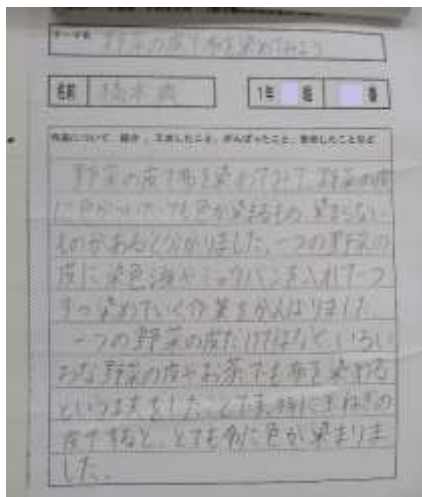 テーマ名 野菜の皮で布を染めてみよう
名前 橋本
1年 組 番
作品について、紹介、工夫したこと、がんばったこと、苦労したことなど
野菜の皮で布を染めてみて、野菜の皮
に色がついていても色が染まるもの、染まらない
ものがあると分かりました。一つの野菜の
皮に染色液やミョウバンを入れて一つ
ずつ染めていく作業をがんばりました。
一つの野菜の皮だけではなく、いろい
ろな野菜の皮やお茶でも布を染める
という工夫をしたことです。特に玉ねぎの
皮ですると、とても布に色が染まりま
した。